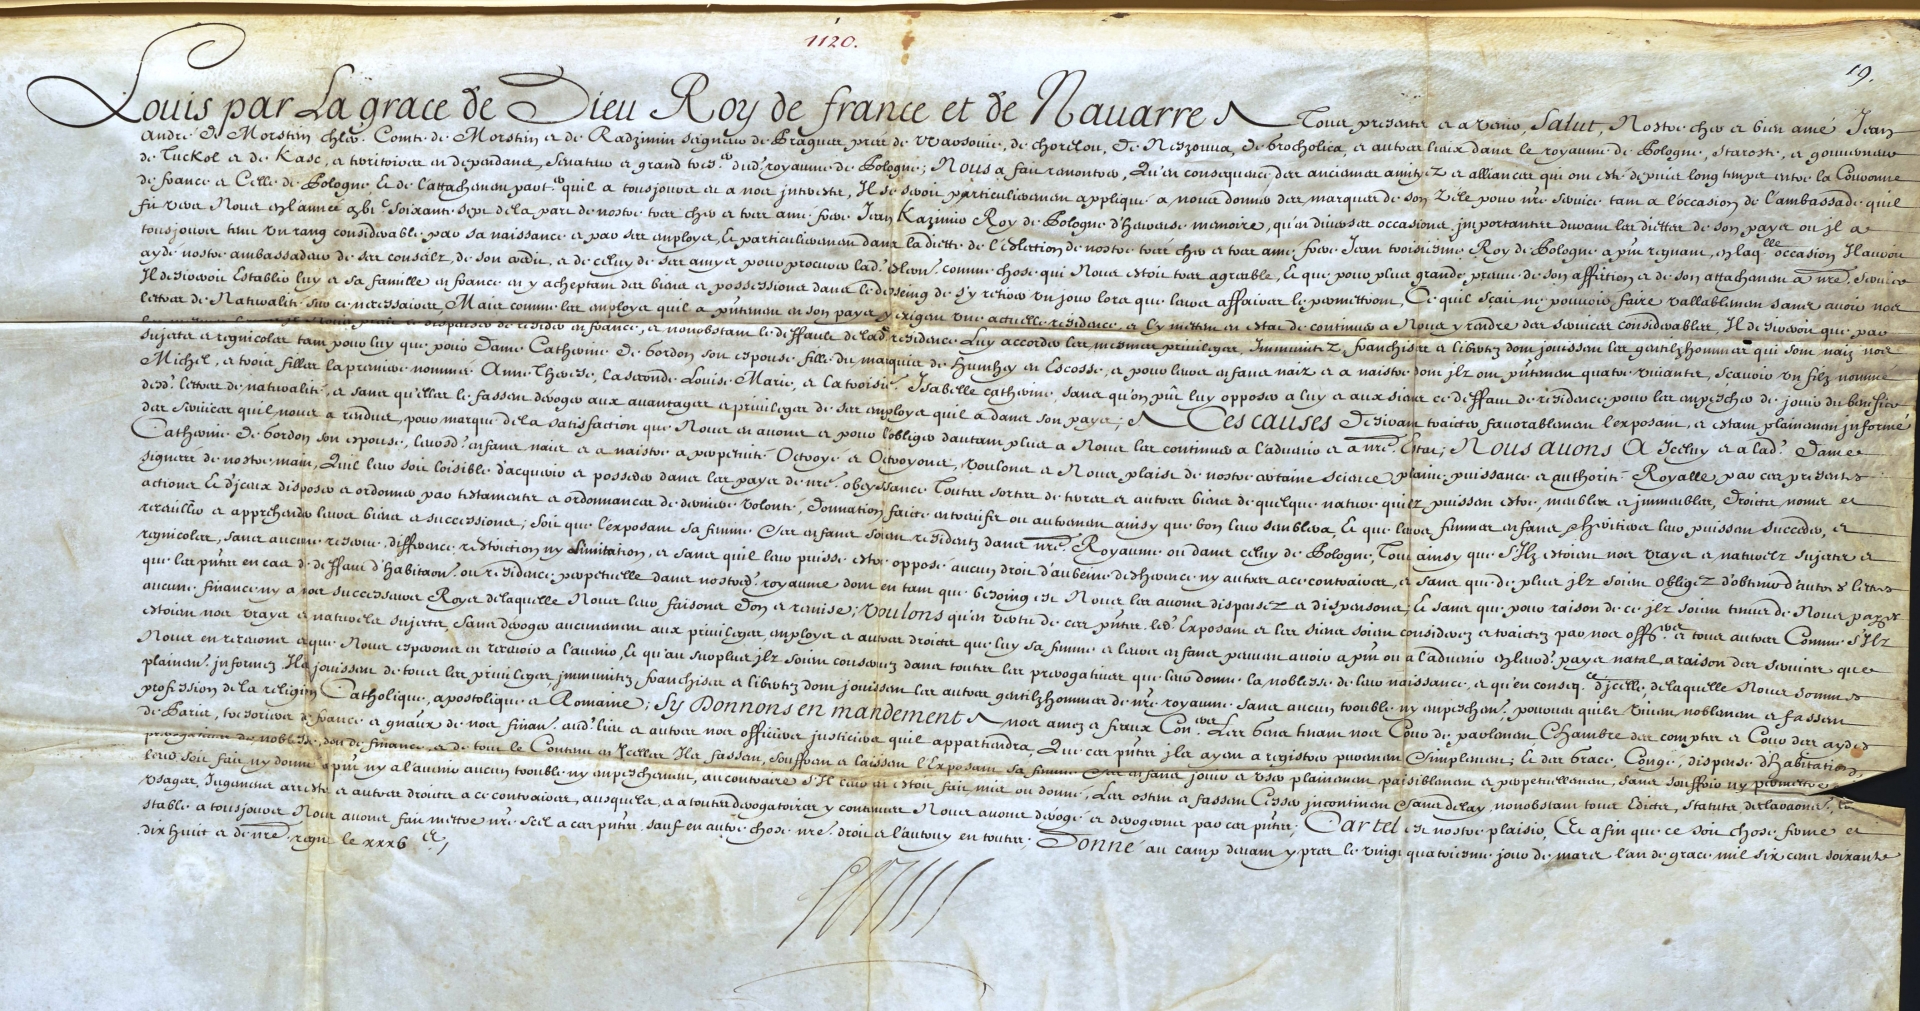 1120.
19.
Louis par La grace de Dieu Roy de france et de Nauarre A Tous presens et a venir, Salut, Nostre cher et bien amé Jean
André de Morstin chler. Comte de Morstin et de Radzimin seigneur de Pragues pres de Warsouie, de chorelou, de et autres lieux dans le royaume de Pologne, Staroste, et gouverneur
de Tuckol et de Kasc, et territoires en dependans, Senateur et grand tres.er dud. royaume de Pologne; Nous a fait remontrer, Qu'en consequence des anciennes amitiez et alliances qui ont esté depuis long temps entre la Couronne
de france et Celle de Pologne, Et de l'attachement part.er quil a tousjours eu a nos interestz, Il se seroit particulierement appliqué a nous donner des marques de son Zele pour nre seruice tant a l'occasion de l'ambassade quil
fit vers Nous en l'année soixante sept de la part de nostre tres cher et tres amé frere Jean Kazimir Roy de Pologne d'heureuse memoire, qu'en diuerses occasions importantes durant les diettes de son pays ou il a
tousjours tenu un rang considerable par sa naissance et par ses employs, Et particulierement dans la diette de l'eslection de nostre tres cher et tres amé frere Jean troisiesme Roy de Pologne a pnt regnant, en laq.lle occasion Il auroit
aydé nostre ambassadeur de ses conseilz, de son credit, et de celuy de ses amys pour procurer lad. eslec.on comme chose qui Nous estoit tres agreable, Et que pour plus grande preuue de son affection et de son attachement a nre seruice
Il desireroit Establir luy et sa famille en france en y acheptant des biens et possessions dans le desseing de s'y retirer un jour lors que leurs affaires le permettront, Ce quil sçait ne pouuoir faire vallablement sans auoir nos
lettres de Naturalité sur ce necessaires, Mais comme les employs quil a pntement en son pays y exigent une actuelle residence, et l'y mettent en estat de continuer a Nous y rendre des seruices considerables, Il desireroit que par
de resider en france, et nonobstant le deffault de lad. residence Luy accorder les mesmes priuileges, Immunitez, franchises et libertez dont jouissent les gentilzhommes qui sont naiz nos
sujets et regnicoles tant pour luy que pour Dame Catherine de Gordon son espouse, fille du marquis de Hunthey en Escosse, et pour leurs enfans naiz et a naistre dont ilz ont pntement quatre viuantes, sçauoir un filz nommé
Michel, et trois filles la premiere nommée Anne Therese, la seconde Louise Marie, et la troisie. Isabelle Catherine, sans qu'on pût luy opposer a luy et aux siens ce deffaut de residence pour les empescher de jouir du benefice
desd. lettres de naturalité, et sans qu'elles le fassent deroger aux auantages et priuileges de ses employs quil a dans son pays; A Ces causes Desirant traicter fauorablement l'exposant, et estant plainement informé
des seruices quil nous a rendus, pour marque de la satisfaction que Nous en auons et pour l'obliger dautant plus a Nous les continuer a l'aduenir et a nre Estat; Nous auons A Iceluy et a lad. Dame
Catherine de Gordon son espouse, leursd. enfans naiz et a naistre a perpetuité Octroyé et Octroyons, voulons et Nous plaist de nostre certaine science, plaine puissance et authorité Royalle, par ces presentes
signées de nostre main, Quil leur soit loisible d'acquerir et posseder dans les pays de nre obeyssance Toutes sortes de terres et autres biens de quelque nature quilz puissent estre, meubles et immeubles, Droicts noms et
actions Et d'iceux disposer et ordonner par testamens et ordonnances de derniere volonté, donnation faicte entreuifs ou autrement ainsy que bon leur semblera, Et que leurs femmes enfans et heritiers leur puissent succeder, et
recueillir et apprehender leurs biens et successions; Soit que l'exposant sa femme et ses enfans soient residentz dans nre Royaume ou dans celuy de Pologne, Tout ainsy que s'Ilz estoient nos vrays et naturelz sujets et
regnicoles, sans aucune reserue, difference, restriction ny limitation, et sans quil leur puisse estre opposé aucun droit d'aubeine desherence ny autres a ce contraires, et sans que de plus ilz soient obligez d'obtenir d'autres lettres
que les pntes en cas de deffaut d'habitaon. ou residence perpetuelle dans nostred. royaume dont en tant que besoing est Nous les auons dispensez et dispensons; Et sans que pour raison de ce ilz soient tenus de Nous payer
aucune finance ny a nos successeurs Roys de laquelle Nous leur faisons don et remise; voulons qu'en vertu de ces pntes led. Exposant et les siens soient considerez et traictez par nos off.ers et tous autres Comme s'Ilz
estoient nos vrays et naturels sujets, Sans deroger aucunement aux priuileges, employs et autres droicts que luy sa femme et leurs enfans peuuent auoir a pnt ou a l'aduenir en leurd. pays natal, a raison des seruices que
Nous en receuons et que Nous esperons en receuoir a l'auenir, Et qu'au surplus ilz soient conseruez dans toutes les prerogatiues que leur donne la noblesse de leur naissance, et qu'en conseq.ce d'icelle, de laquelle Nous sommes
plainem. informez Ilz jouissent de tous les priuileges immunitez, franchises et libertez dont jouissent les autres gentilzhommes de nre royaume sans aucun trouble ny empeschem. pourueu quilz viuent noblement et fassent
profession de la religion Catholique, apostolique et Romaine; Sy Donnons en mandement A nos amez et feaux Con.ers Les gens tenans nos Cours de parlement Chambre des comptes et Cour des aydes
de Paris, tresoriers de france et gnaux de nos finan. aud. lieu et autres nos officiers justiciers quil appartiendra, Que ces pntes ilz ayent a registrer purement et simplement; Et des Grace, Congé, dispense d'habitation,
prerogatiues de noblesse, don de finance, et de tout le Contenu en Icelles Ilz fassent, souffrent et laissent l'Exposant sa femme et ses enfans jouir et user plainement paisiblement et perpetuellement, sans souffrir ny permettre
leur soit fait ny donné a pnt ny a l'auenir aucun trouble ny empeschement, au contraire s'Il leur en estoit fait mis ou donné, Les ostent et fassent Cesser incontinent et sans delay, nonobstant tous Edicts, Statuts declaraons,
usages, Jugemens arrests et autres droicts a ce contraires, ausquelz, et a toutes derogatoires y contenues Nous auons derogé et derogeons par ces pntes; Car tel est nostre plaisir, Et afin que ce soit chose ferme et
stable a tousjours Nous auons fait mettre nre Scel a ces pntes sauf en autre chose nre droit et l'autruy en toutes. Donné au camp deuant ypres le vingt quatriesme jour de mars l'an de grace mil six cens soixante
dix huit et de nre regne le xxxv
Louis